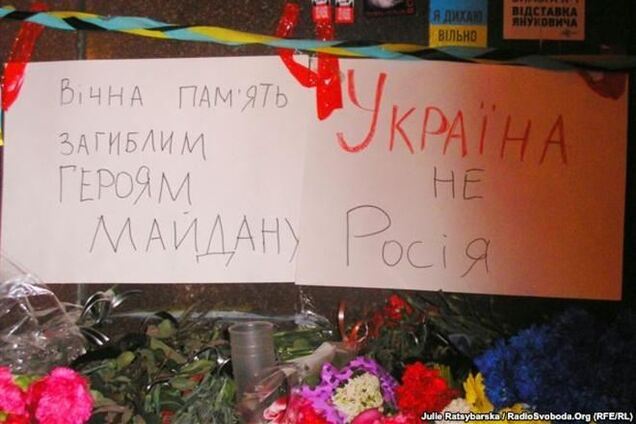 Я ДИХАЮ
ВІЛЬНО
ВІДСТАВКА
ЯНУКОВИЧА
ВІЧНА ПАМ'ЯТЬ
ЗАГИБЛИМ
ГЕРОЯМ
МАЙДАНУ
УКРАЇНА
НЕ
РОСІЯ
Julie Ratsybarska / RadioSvoboda.Org (RFE/RL)